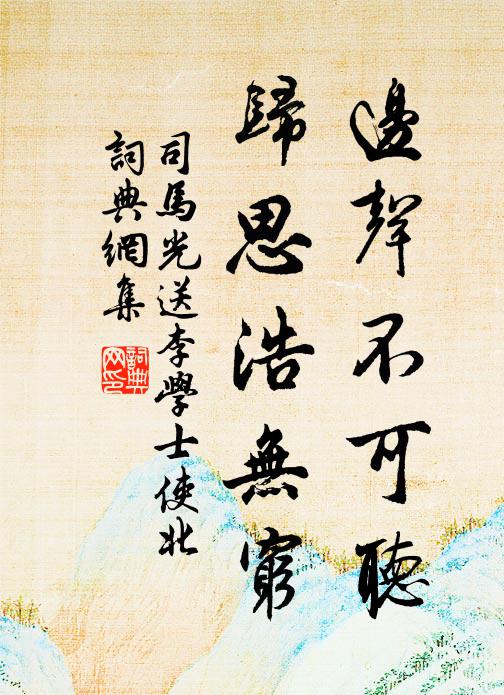 邊聲不可聽
歸思浩無窮
司馬光送李學士使北
詞典網集
詞典
网印